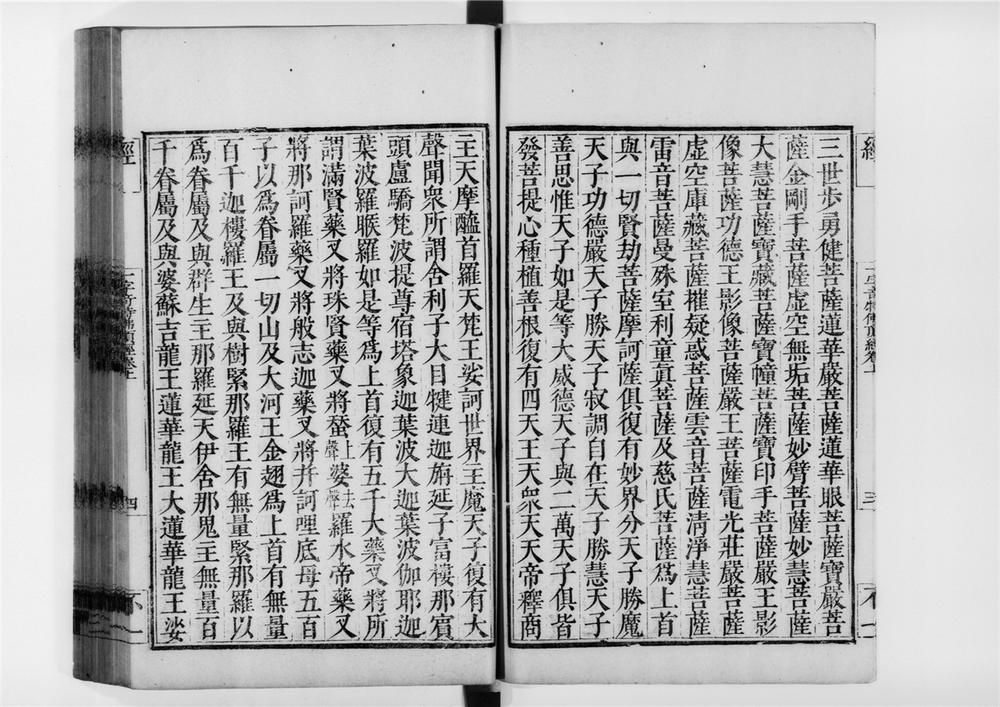 三世步勇健菩薩蓮華嚴菩薩蓮華眼菩薩寶嚴菩
薩金剛手菩薩虛空無垢菩薩妙臂菩薩妙慧菩薩
大慧菩薩寶藏菩薩寶幢菩薩寶印手菩薩嚴王影
像菩薩功德王影像菩薩嚴王菩薩電光莊嚴菩薩
虛空庫藏菩薩摧疑惑菩薩雲音菩薩清淨慧菩薩
雷音菩薩曼殊室利童真菩薩及慈氏菩薩爲上首
與一切賢劫菩薩摩訶薩俱復有妙界分天子勝魔
天子功德嚴天子勝天子寂調自在天子勝慧天子
善思惟天子如是等大威德天子與二萬天子俱皆
發菩提心種植善根復有四天王天衆天天帝釋商
主天摩醯首羅天梵王娑訶世界主魔天子復有大
聲聞衆所謂舍利子大目犍連迦旃延子富樓那賓
頭盧驕梵波提尊宿塔象迦葉波大迦葉波伽耶迦
葉波羅睺羅如是等爲上首復有五千大藥叉將所
謂滿賢藥叉將珠賢藥叉將蚕上聲婆去聲羅水帝藥叉
將那訶羅藥叉將般志迦藥叉將并訶哩底母五百
子以爲眷屬一切山及大河王金翅爲上首有無量
百千迦樓羅王及與樹緊那羅王有無量緊那羅以
爲眷屬及與群生主那羅延天伊舍那鬼王無量百
千眷屬及與婆蘇吉龍王蓮華龍王大蓮華龍王娑
四
三